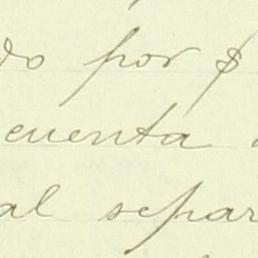 do por $
cuenta
al separ